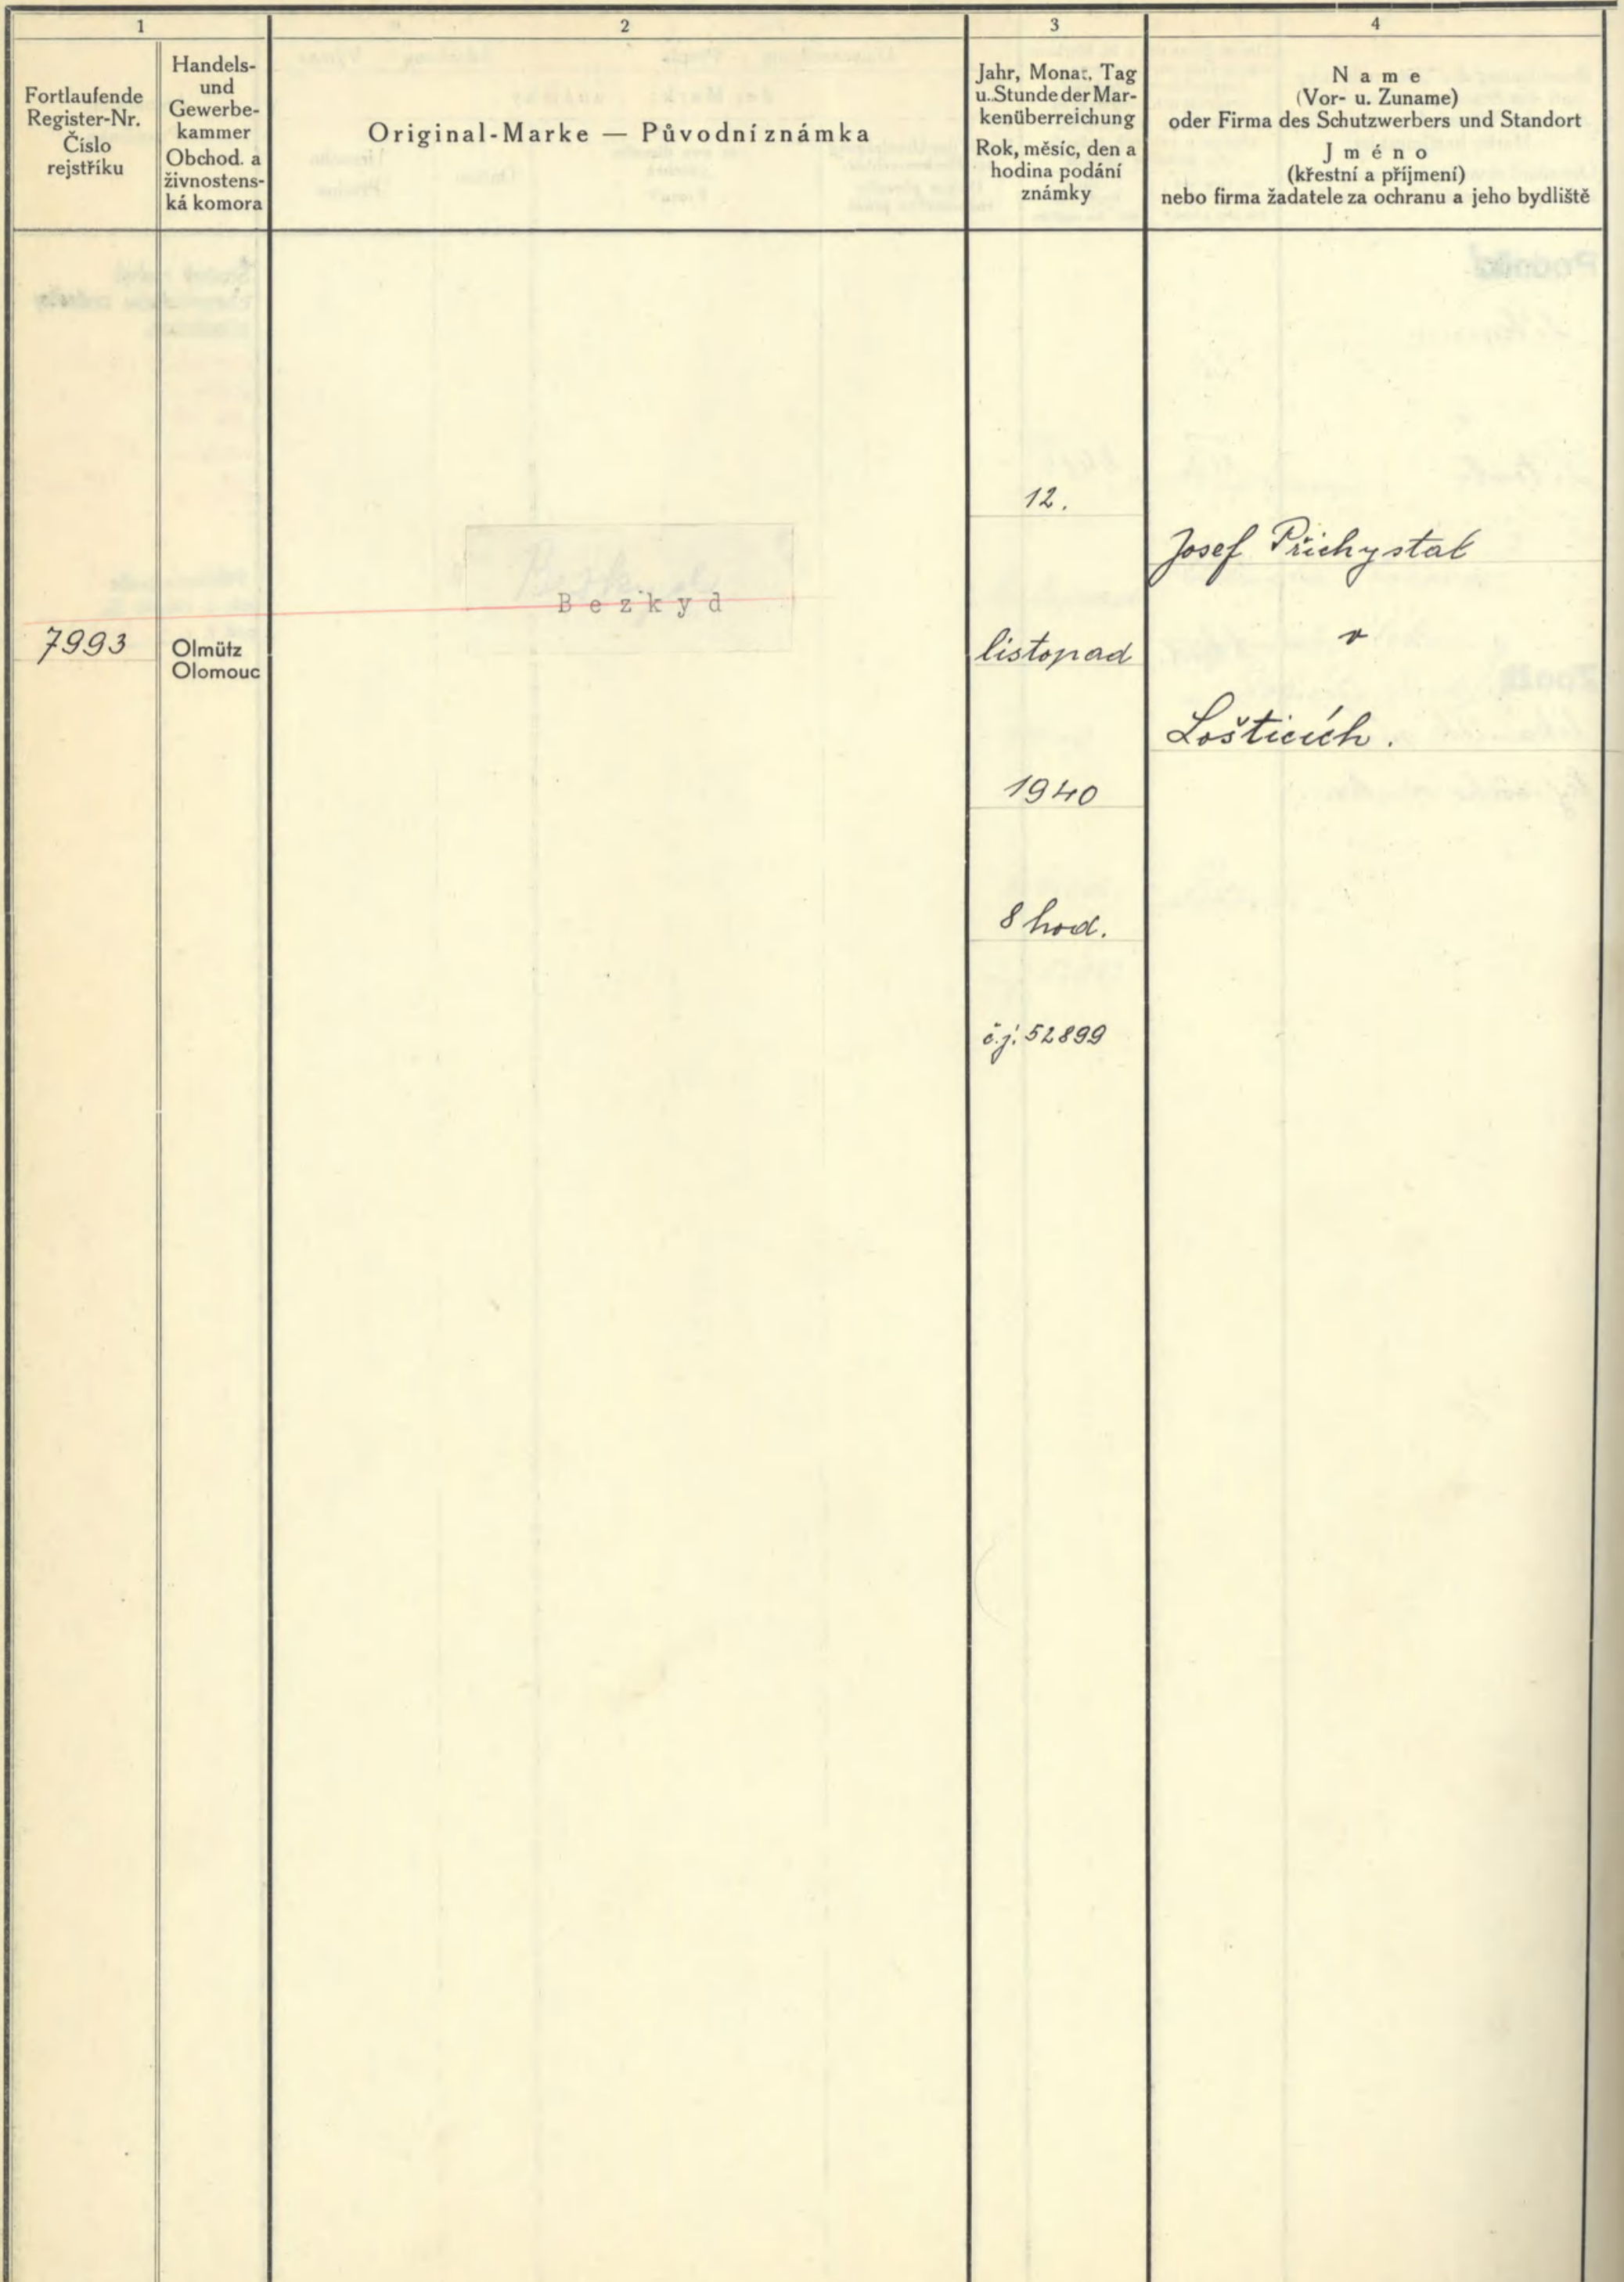 1
2
3
4
Fortlaufende
Register-Nr.
Číslo
rejstříku
Handels-
und
Gewerbe-
kammer
Obchod. a
živnostens-
ká komora
Original-Marke — Původní známka
Jahr, Monat, Tag
u. Stunde der Mar-
kenüberreichung
Rok, měsíc, den a
hodina podání
známky
Name
(Vor- u. Zuname)
oder Firma des Schutzwerbers und Standort
Jméno
(křestní a příjmení)
nebo firma žadatele za ochranu a jeho bydliště
7993
Olmütz
Olomouc
Bezkyd
12.
listopad
1940
8 hod.
č.j. 52899
Josef Přichystal
v
Lošticích.